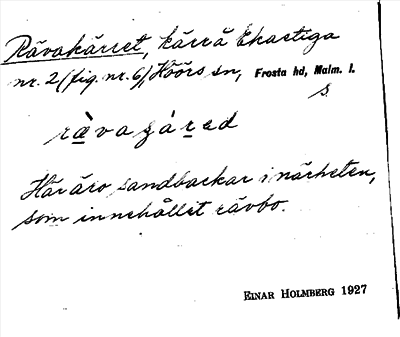 Rävakärret, kärr å Ekastiga
nr. 2 (fig. nr. 6), Höörs sn, Frosta hd, Malm. l.
s
ràvagáred
Här äro sandbackar i närheten,
som innehållit rävbo.
EINAR HOLMBERG 1927